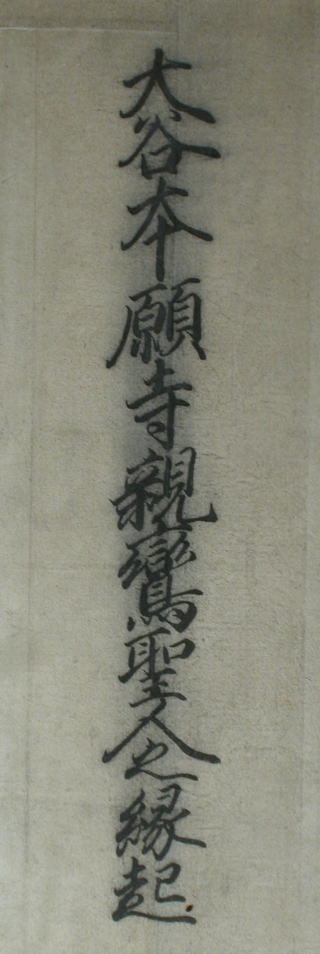 大谷本願寺親鸞聖人之縁起